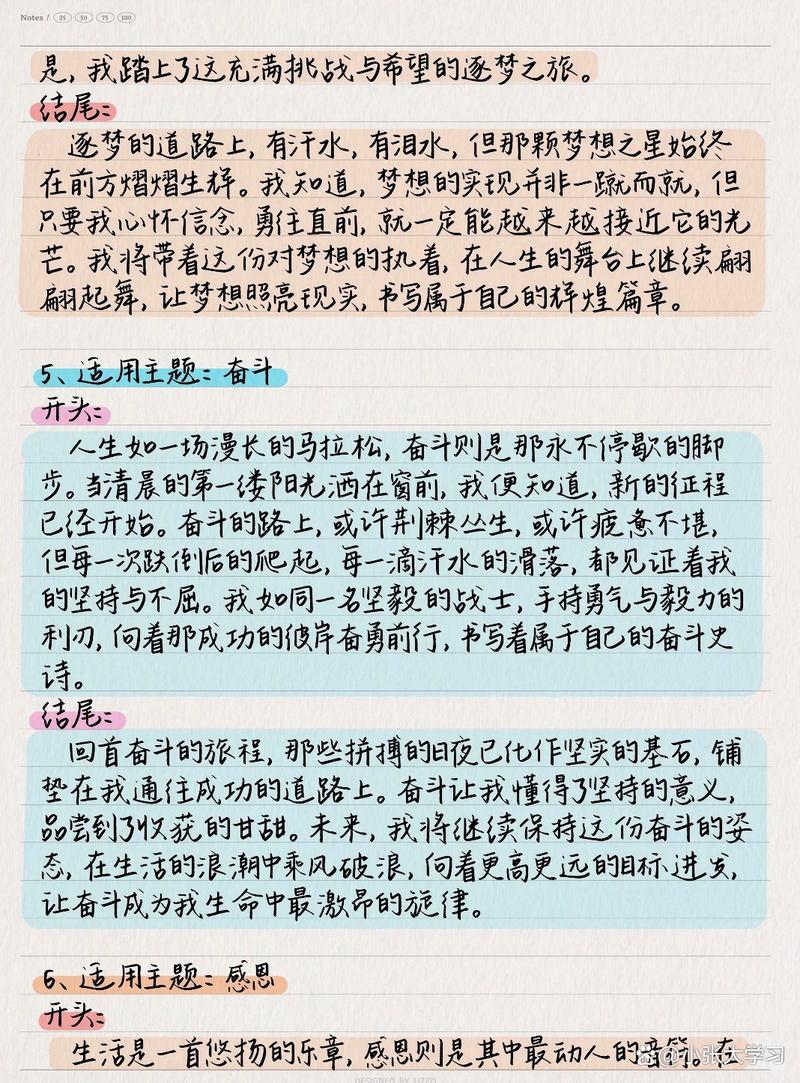 Notes / 25 50 75 100
是，我踏上了这充满挑战与希望的逐梦之旅。
结尾：
逐梦的道路上，有汗水，有泪水，但那颗梦想之星始终
在前方熠熠生辉。我知道，梦想的实现并非一蹴而就，但
只要我心怀信念，勇往直前，就一定能越来越接近它的光
芒。我将带着这份对梦想的执着，在人生的舞台上继续翩
翩起舞，让梦想照亮现实，书写属于自己的辉煌篇章。
5、适用主题：奋斗
开头：
人生如一场漫长的马拉松，奋斗则是那永不停歇的脚
步。当清晨的第一缕阳光洒在窗前，我便知道，新的征程
已经开始。奋斗的路上，或许荆棘丛生，或许疲惫不堪，
但每一次跌倒后的爬起，每一滴汗水的滑落，都见证着我
的坚持与不屈。我如同一名坚毅的战士，手持勇气与毅力的
利刃，向着那成功的彼岸奋勇前行，书写着属于自己的奋斗史
诗。
结尾：
回首奋斗的旅程，那些拼搏的日夜已化作坚实的基石，铺
垫在我通往成功的道路上。奋斗让我懂得了坚持的意义，
品尝到了收获的甘甜。未来，我将继续保持这份奋斗的姿
态，在生活的浪潮中乘风破浪，向着更高更远的目标进发，
让奋斗成为我生命中最激昂的旋律。
6、适用主题：感恩
开头：
生活是一首悠扬的乐章，感恩则是其中最动人的音符。在
@小张大学习
DESIGNED BY LIZZZI